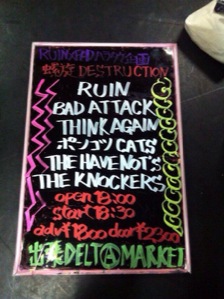 DESTRUCTION
RUIN
BAD ATTACK
THINK AGAIN
ポンコツ CATS
THE HAVE NOT'S
THE KNOCKERS
open 18:00
start 18:30
adv ¥1800 door ¥2300
DELT@MARKET